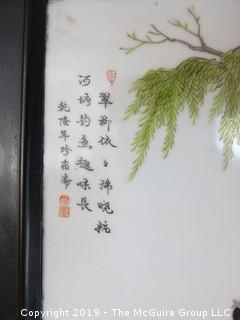 翠柳依々沸晚粧
河塘釣魚趣味長
乾隆年珍
Copyright 2019 - The McGuire Group LLC